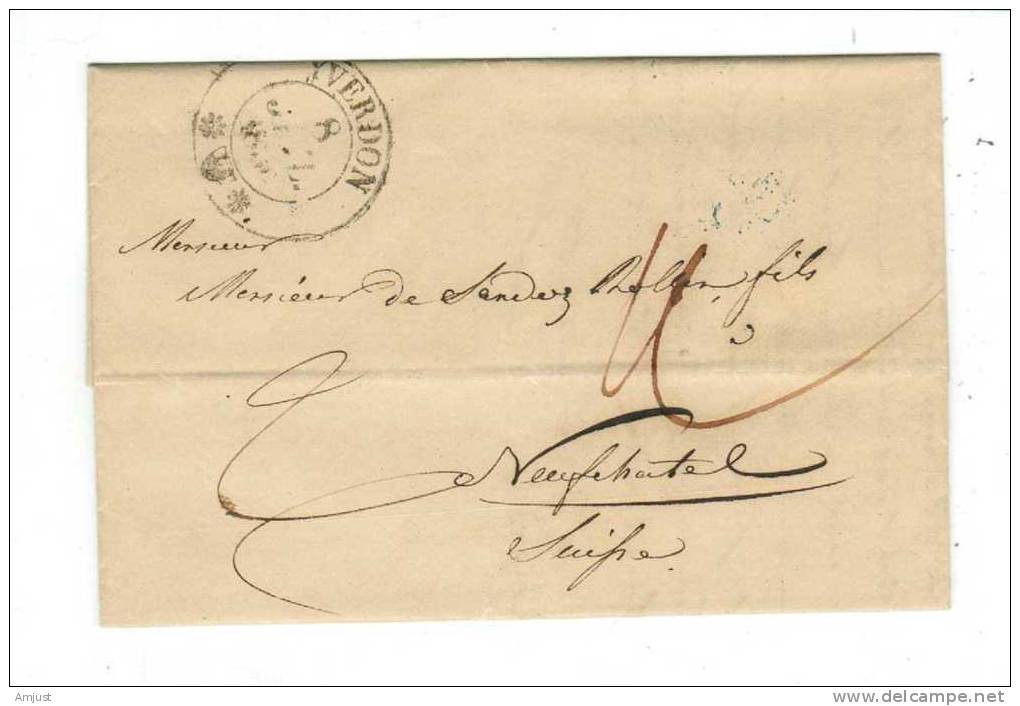 YVERDON
8
Monsieur
Monsieur de Sandoz Rollin, fils
Neufchatel
Suisse.
Amjust
www.delcampe.net